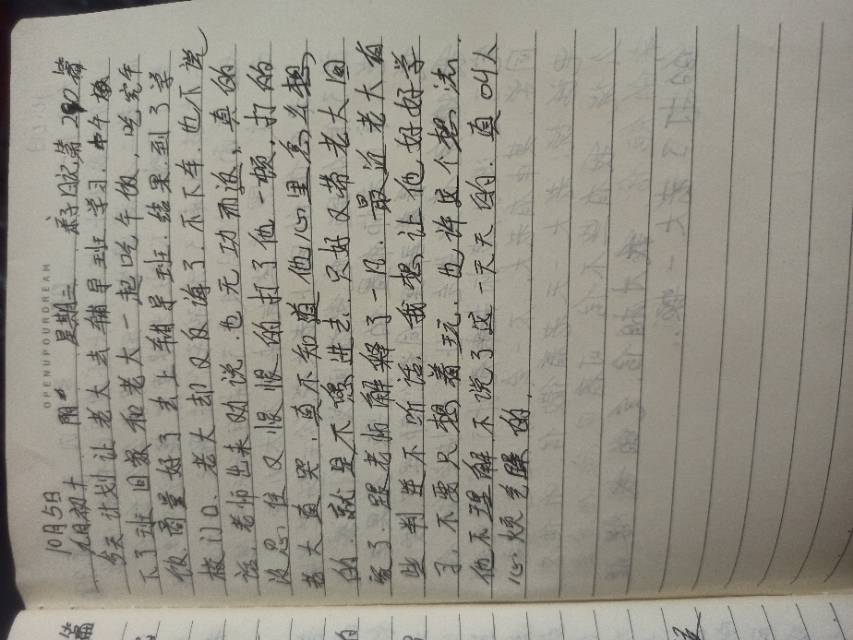 OPENUPOURDREAM
10月5日 阴 星期三 亲子日记第280篇
九月初十
今天计划让老大去辅导班学习.中午我
下了班回家和老大一起吃午饭,吃完午
饭商量好了去上辅导班.结果到了学
校门口.老大却又反悔了.不下车.也不说
话.老师出来劝说.也无功而返,真的
没忍住又狠狠的打了他一顿,打的
老大直哭,真不知道他心里怎么想
的.就是不愿进去.只好又带老大回
家了跟老师解释了一凡.最近老大有
些判逆不听话.我想让他好好学
了.不要只想着玩.也许这个想法.
他不理解.不说了这一天天的.真04人
心.烦气躁的.
篇